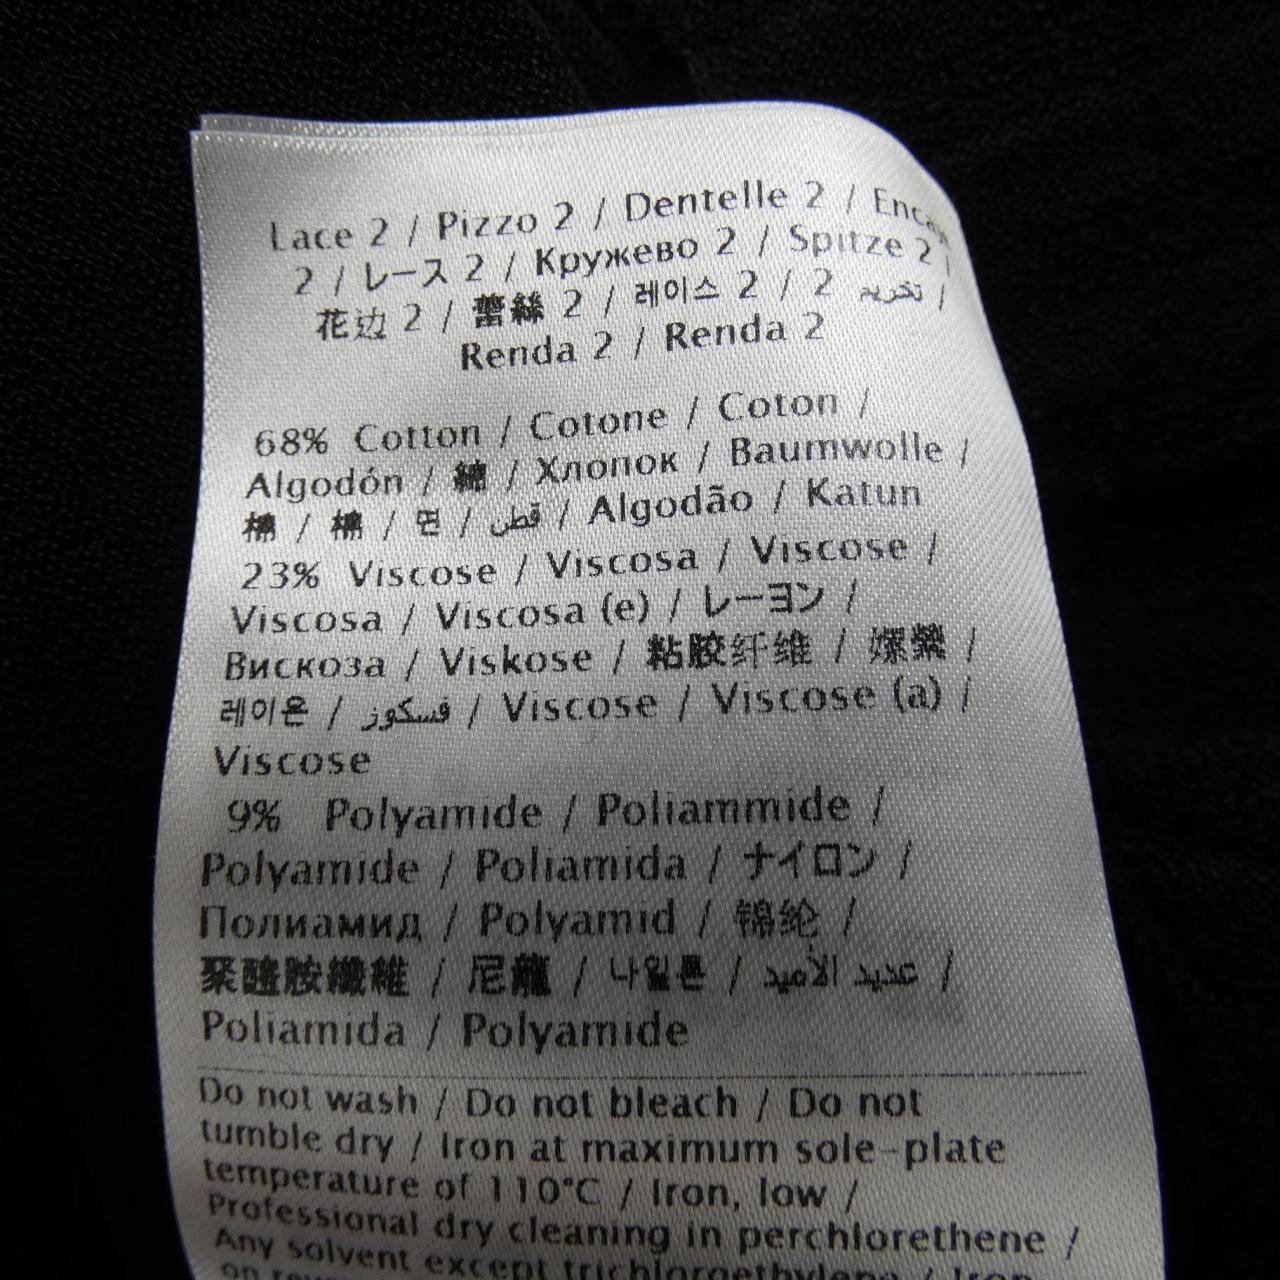 Lace 2 / Pizzo 2 / Dentelle 2 / Encaje
2 / レース 2 / Кружево 2 / Spitze 2 /
花边 2 / 蕾絲 2 / 레이스 2 / 2 تخريم /
Renda 2 / Renda 2
68% Cotton / Cotone / Coton /
Algodón / 綿 / Хлопок / Baumwolle /
棉 / 棉 / 면 / قطن / Algodão / Katun
23% Viscose / Viscosa / Viscose /
Viscosa / Viscosa (e) / レーヨン /
Вискоза / Viskose / 粘胶纤维 / 嫘縈 /
레이온 / فسكوز / Viscose / Viscose (a) /
Viscose
9% Polyamide / Poliammide /
Polyamide / Poliamida / ナイロン /
Полиамид / Polyamid / 锦纶 /
聚醯胺纖維 / 尼龍 / 나일론 / عديد الأميد /
Poliamida / Polyamide
Do not wash / Do not bleach / Do not
tumble dry / Iron at maximum sole-plate
temperature of 110°C / Iron, low /
Professional dry cleaning in perchlorethene /
Any solvent except trichloroethylene / Iron
on